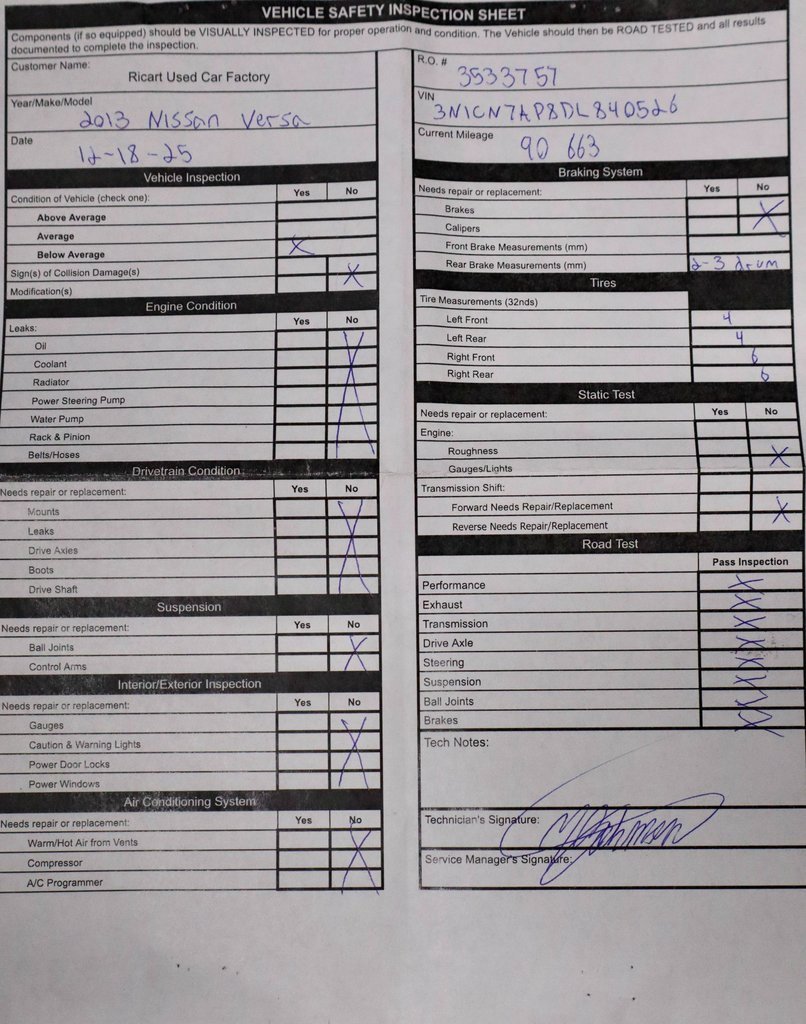 VEHICLE SAFETY INSPECTION SHEET
Components (if so equipped) should be VISUALLY INSPECTED for proper operation and condition. The Vehicle should then be ROAD TESTED and all results
documented to complete the inspection.
Customer Name:
Ricart Used Car Factory
Year/Make/Model
2013 Nissan Versa
Date
12-18-25
Vehicle Inspection
Condition of Vehicle (check one): Yes No
Above Average
Average
Below Average X
Sign(s) of Collision Damage(s) X
Modification(s)
Engine Condition
Leaks: Yes No
Oil
Coolant
Radiator
Power Steering Pump
Water Pump
Rack & Pinion
Belts/Hoses
Drivetrain Condition
Needs repair or replacement: Yes No
Mounts
Leaks
Drive Axles
Boots
Drive Shaft
Suspension
Needs repair or replacement: Yes No
Ball Joints
Control Arms
Interior/Exterior Inspection
Needs repair or replacement: Yes No
Gauges
Caution & Warning Lights
Power Door Locks
Power Windows
Air Conditioning System
Needs repair or replacement: Yes No
Warm/Hot Air from Vents
Compressor
A/C Programmer
R.O. #
3533757
VIN
3N1CN7AP8DL840526
Current Mileage
90 663
Braking System
Needs repair or replacement: Yes No
Brakes
Calipers
Front Brake Measurements (mm)
Rear Brake Measurements (mm) 2-3 drum
Tires
Tire Measurements (32nds)
Left Front 4
Left Rear 4
Right Front 6
Right Rear 6
Static Test
Needs repair or replacement: Yes No
Engine:
Roughness
Gauges/Lights
Transmission Shift:
Forward Needs Repair/Replacement
Reverse Needs Repair/Replacement
Road Test
Pass Inspection
Performance X
Exhaust X
Transmission X
Drive Axle X
Steering X
Suspension X
Ball Joints X
Brakes X
Tech Notes:
Technician's Signature:
Service Manager's Signature: